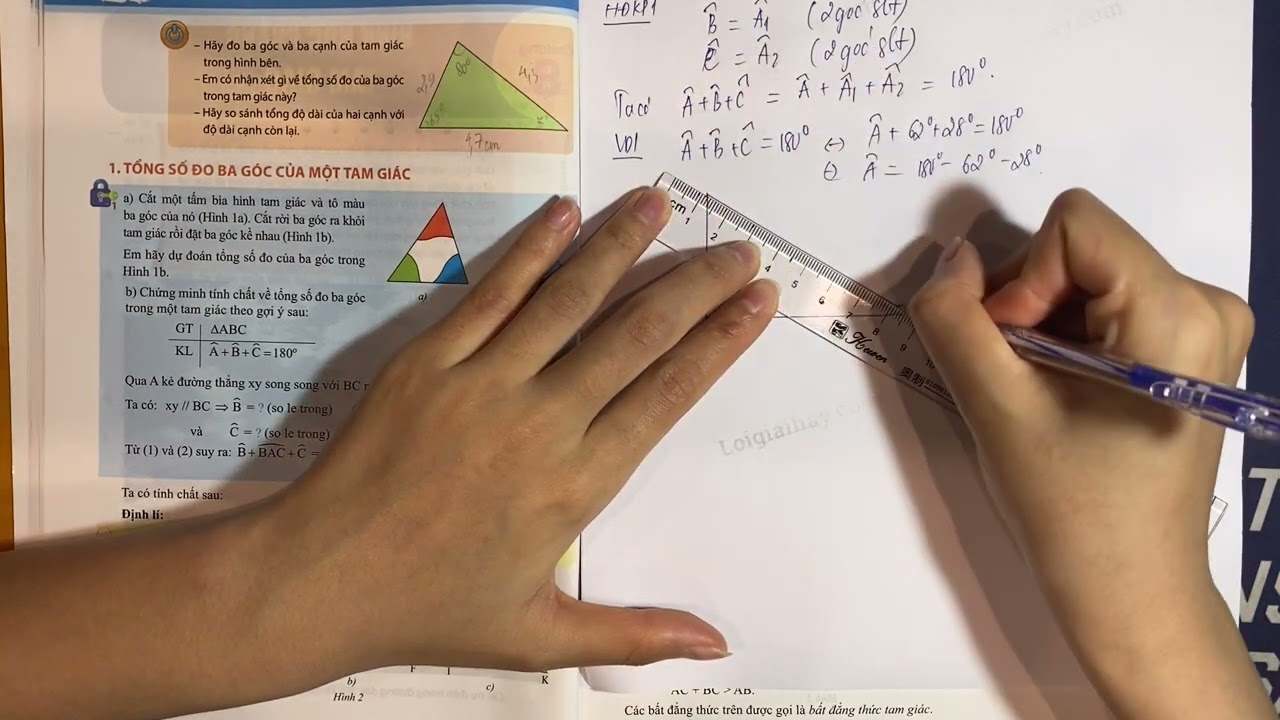 – Hãy đo ba góc và ba cạnh của tam giác
trong hình bên.
– Em có nhận xét gì về tổng số đo của ba góc
trong tam giác này?
– Hãy so sánh tổng độ dài của hai cạnh với
độ dài cạnh còn lại.
80°
4,7cm
1. TỔNG SỐ ĐO BA GÓC CỦA MỘT TAM GIÁC
1
a) Cắt một tấm bìa hình tam giác và tô màu
ba góc của nó (Hình 1a). Cắt rời ba góc ra khỏi
tam giác rồi đặt ba góc kề nhau (Hình 1b).
Em hãy dự đoán tổng số đo của ba góc trong
Hình 1b.
a)
b) Chứng minh tính chất về tổng số đo ba góc
trong một tam giác theo gợi ý sau:
GT ΔABC
KL Â + B̂ + Ĉ = 180°
Qua A kẻ đường thẳng xy song song với BC
Ta có: xy // BC ⇒ B̂ = ? (so le trong)
và Ĉ = ? (so le trong)
Từ (1) và (2) suy ra: B̂ + BAC + Ĉ =
Ta có tính chất sau:
Định lí:
b)
Hình 2
c)
K
HĐKP1
B̂ = Â1 (2 góc slt)
Ĉ = Â2 (2 góc slt)
Ta có Â + B̂ + Ĉ = Â + Â1 + Â2 = 180°.
VD1 Â + B̂ + Ĉ = 180° ⇔ Â + 62° + 28° = 180°
⇔ Â = 180° – 62° – 28°.
cm 1 2 4 5 6 7 8 9 10
Loigiaihay.co
AC + BC > AB.
Các bất đẳng thức trên được gọi là bất đẳng thức tam giác.